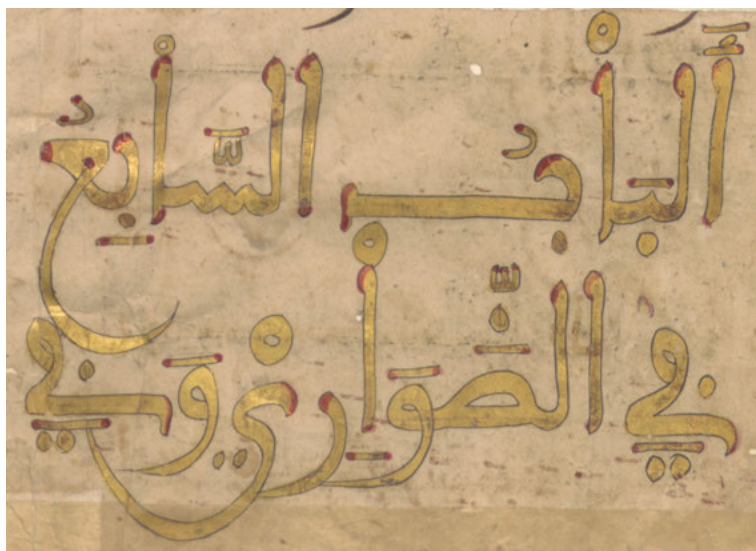 اَلْبَابُ السَّابِعُ
فِي الضَّوَارِي وَفِي